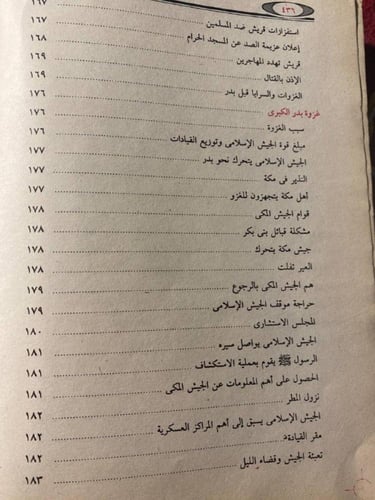 ٤٣٦
استفزازات قريش ضد المسلمين ١٦٧
إعلان عزيمة الصد عن المسجد الحرام ١٦٨
قريش تهدد المهاجرين ١٦٩
الإذن بالقتال ١٦٩
الغزوات والسرايا قبل بدر ١٧٦
غزوة بدر الكبرى ١٧٦
سبب الغزوة ١٧٦
مبلغ قوة الجيش الإسلامى وتوزيع القيادات ١٧٧
الجيش الإسلامى يتحرك نحو بدر ١٧٧
النذير فى مكة ١٧٧
أهل مكة يتجهزون للغزو ١٧٧
قوام الجيش المكى ١٧٨
مشكلة قبائل بنى بكر ١٧٨
جيش مكة يتحرك ١٧٨
العير تفلت ١٧٨
هم الجيش المكى بالرجوع ١٧٩
حراجة موقف الجيش الإسلامى ١٧٩
المجلس الاستشارى ١٨٠
الجيش الإسلامى يواصل سيره ١٨١
الرسول ﷺ يقوم بعملية الاستكشاف ١٨١
الحصول على أهم المعلومات عن الجيش المكى ١٨١
نزول المطر ١٨٢
الجيش الإسلامى يسبق إلى أهم المراكز العسكرية ١٨٢
مقر القيادة ١٨٢
تعبئة الجيش وقضاء الليل ١٨٣